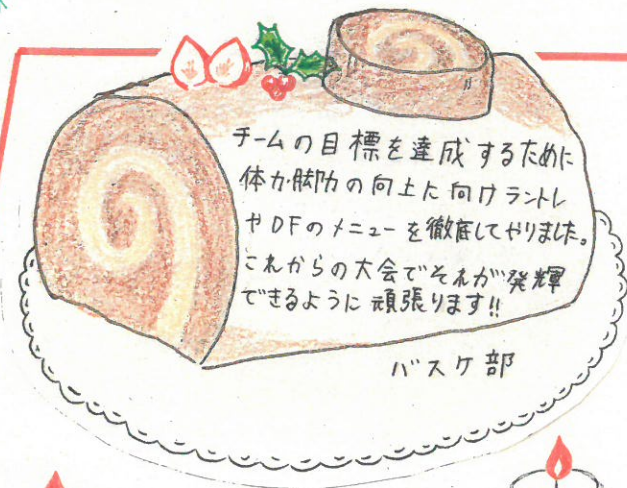 チームの目標を達成するために
体力・脚力の向上に向けラントレ
やDFのメニューを徹底してやりました。
これからの大会でそれが発揮
できるように頑張ります!!
バスケ部